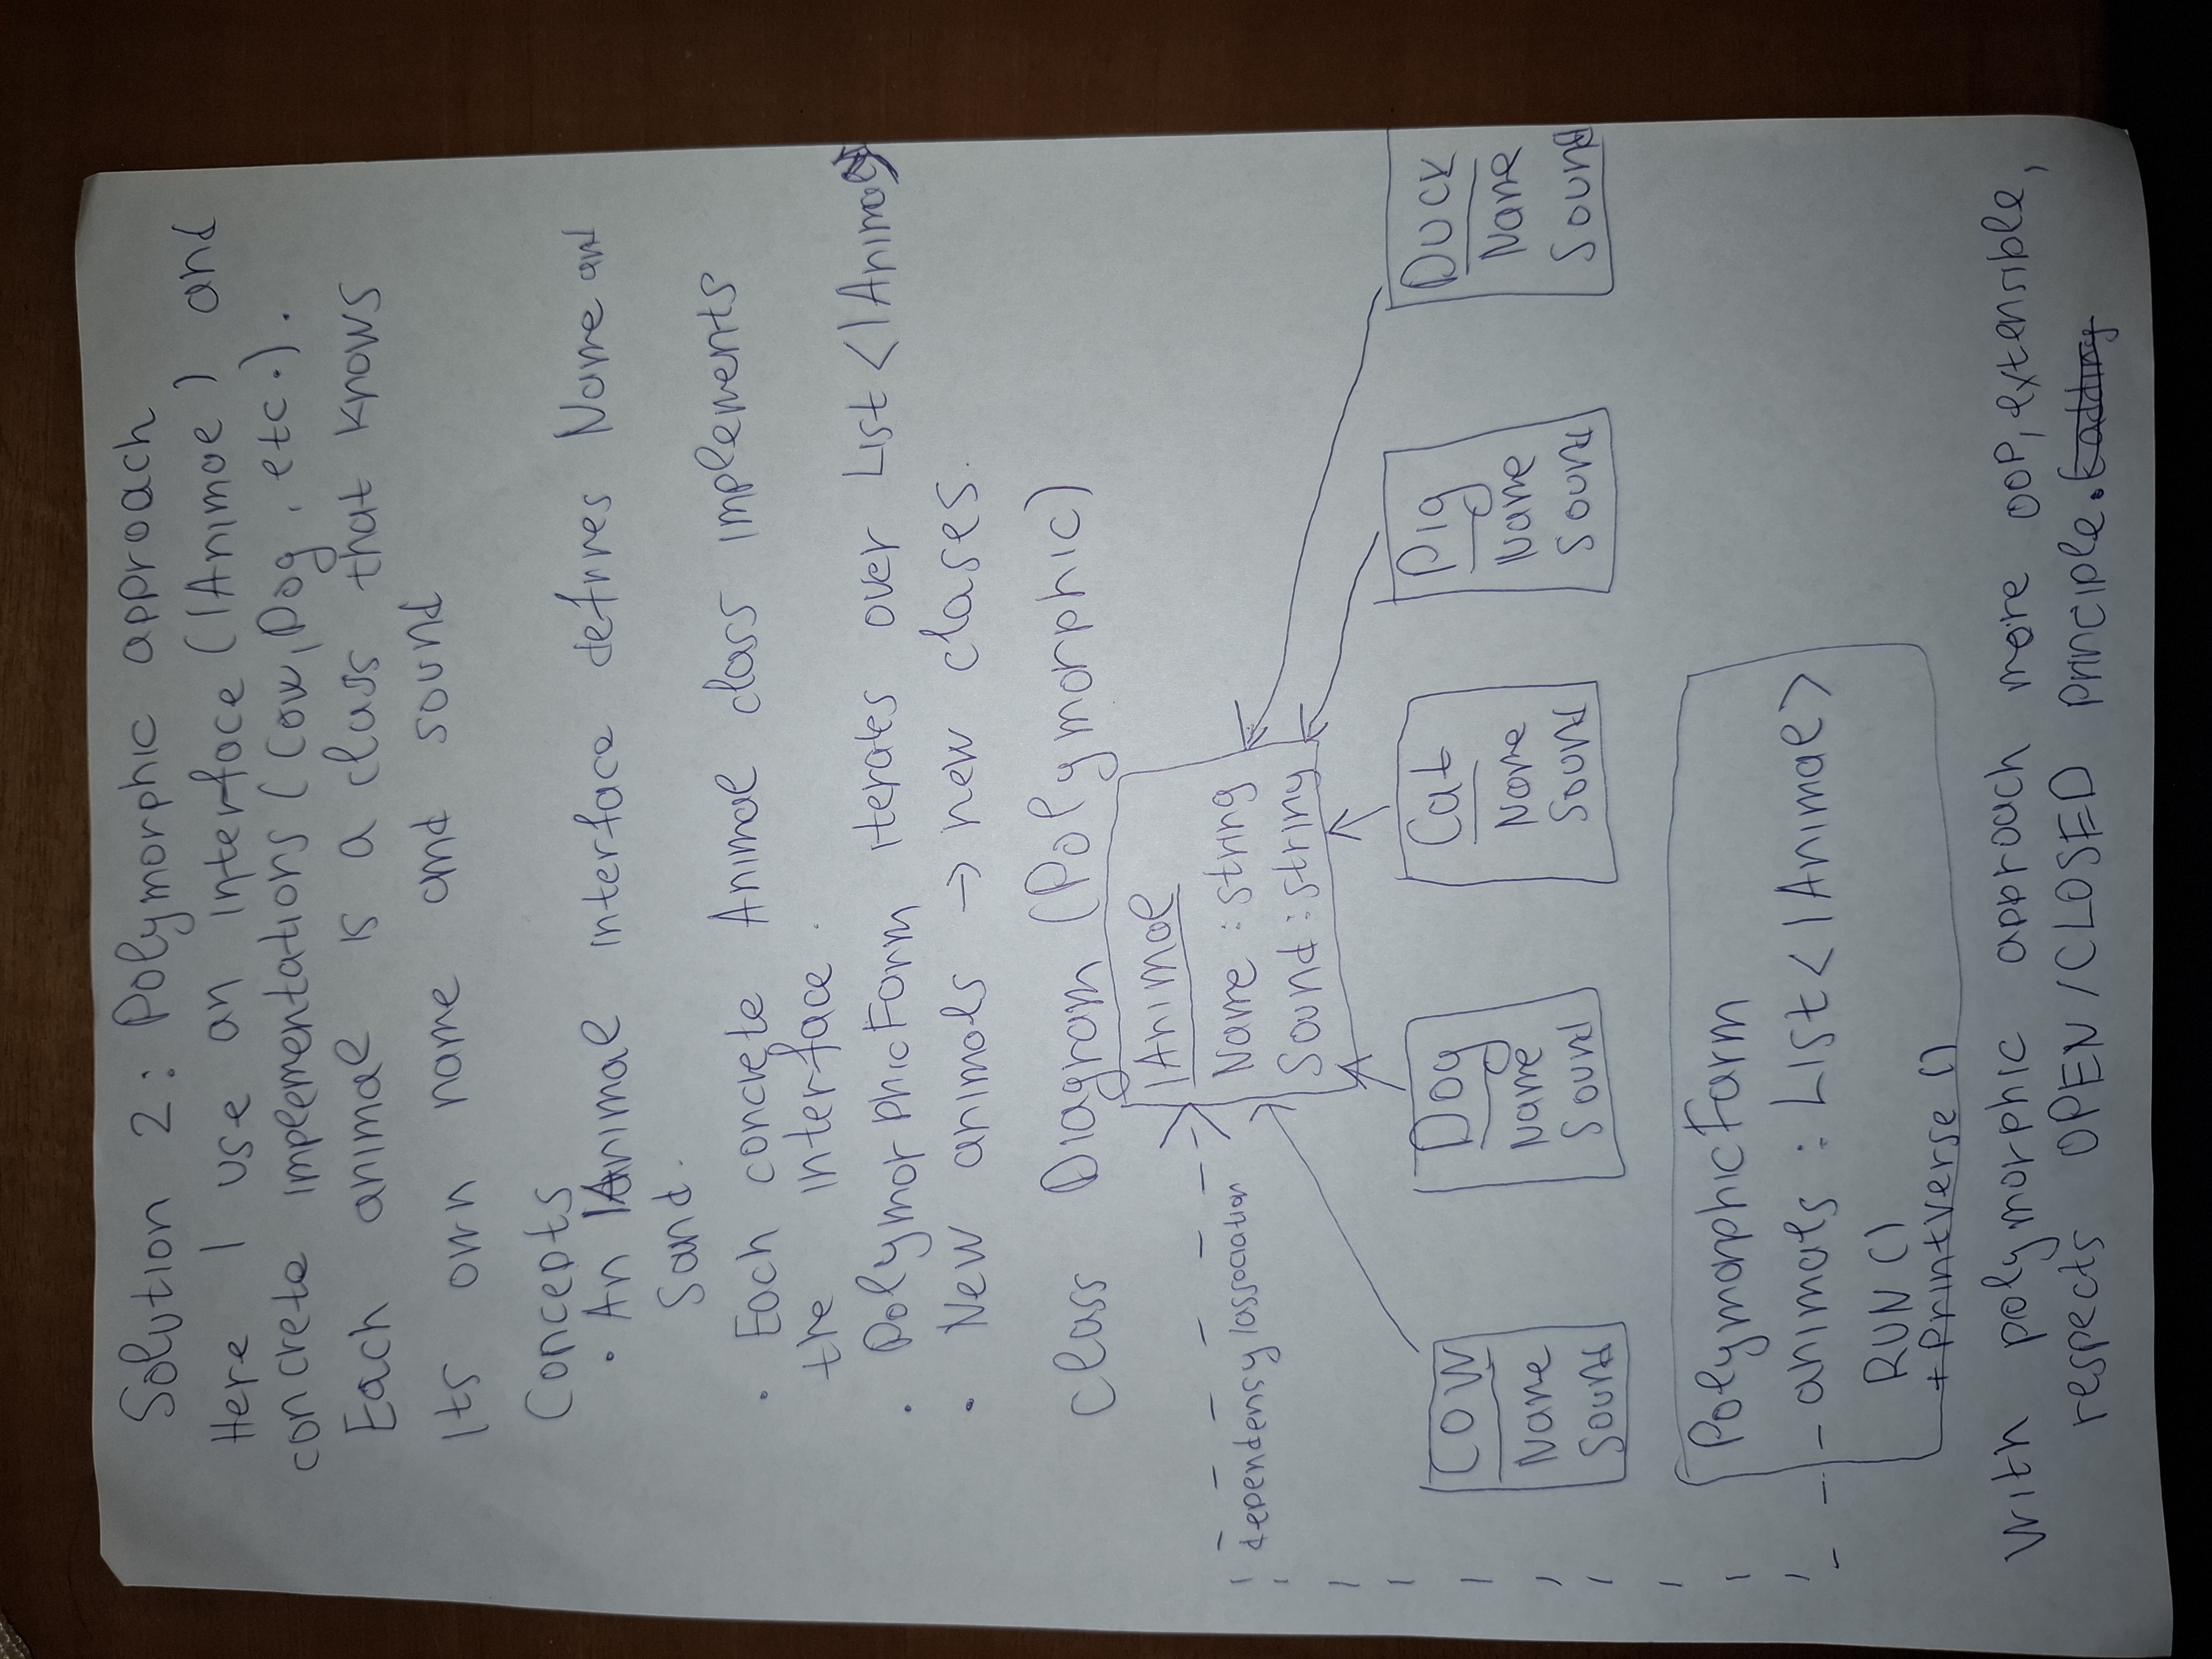 Solution 2: Polymorphic approach
Here I use an interface (IAnimal) and
concrete implementations (Cow, Dog, etc.).
Each animal is a class that knows
its own name and sound
Concepts
• An IAnimal interface defines Name and
Sand.
• Each concrete Animal class implements
the interface.
• PolymorphicFarm iterates over List<IAnimal>
• New animals → new clases.
class Diagram (Polymorphic)
IAnimal
Name : string
dependency/association
Sound : string
Cow Dog Cat Pig Duck
Name Name Name Name Name
Sound Sound Sound Sound Sound
PolymorphicFarm
- animals : List<IAnimal>
RUN ()
+ Printverse ()
With polymorphic approach more OOP, extensible,
respects OPEN/CLOSED principle.